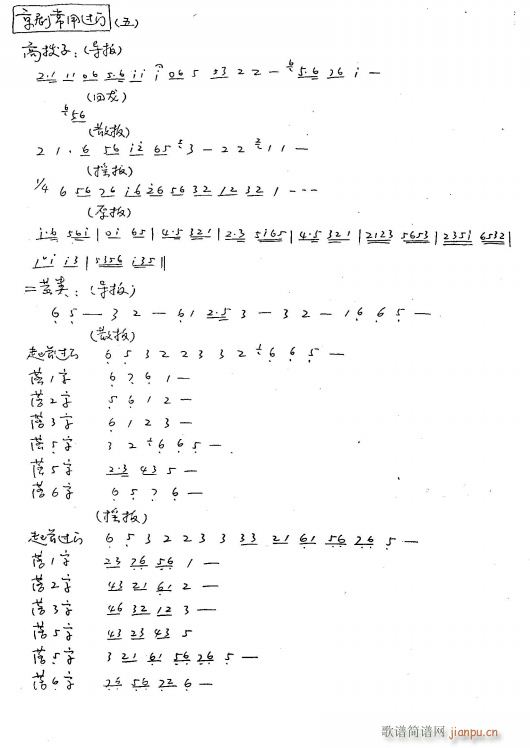 京剧常用过门(五)
高拨子:(导板)
2·1 11 06 5·6 i i i 06 5 53 2 2 — 6 5·6 26 i —
(回龙)
6 56
(散板)
2 1 · 6 56 i2 65 5 3 — 2 2 2 1 1 —
(摇板)
1/4 6 56 26 i6 26 56 32 12 32 1 - - -
(原板)
i·6 56i | 0i 65 | 4·5 321 | 2·3 5i65 | 4·5 321 | 2123 5653 | 235i 6532 |
i3 | 5356 i35 ||
二黄类:(导板)
6 5 — 3 2 — 61 2·5 3 — 3 2 — 1 6 6 5 —
(散板)
起前过门 6 5 3 2 2 3 3 2 6 6 5 —
落1字 6 ? 6 1 —
落2字 5 6 1 2 —
落3字 6 1 2 3 —
落5字 3 2 6 6 5 —
落5字 2·3 43 5 —
落6字 6 5 ? 6 —
(摇板)
起前过门 6 5 3 2 2 3 3 33 21 61 56 26 5 —
落1字 23 26 56 1 —
落2字 43 21 61 2 —
落3字 46 32 12 3 —
落5字 43 23 43 5
落5字 3 21 61 56 26 5 —
落6字 26 56 22 6 —
歌谱简谱网
jianpu.cn